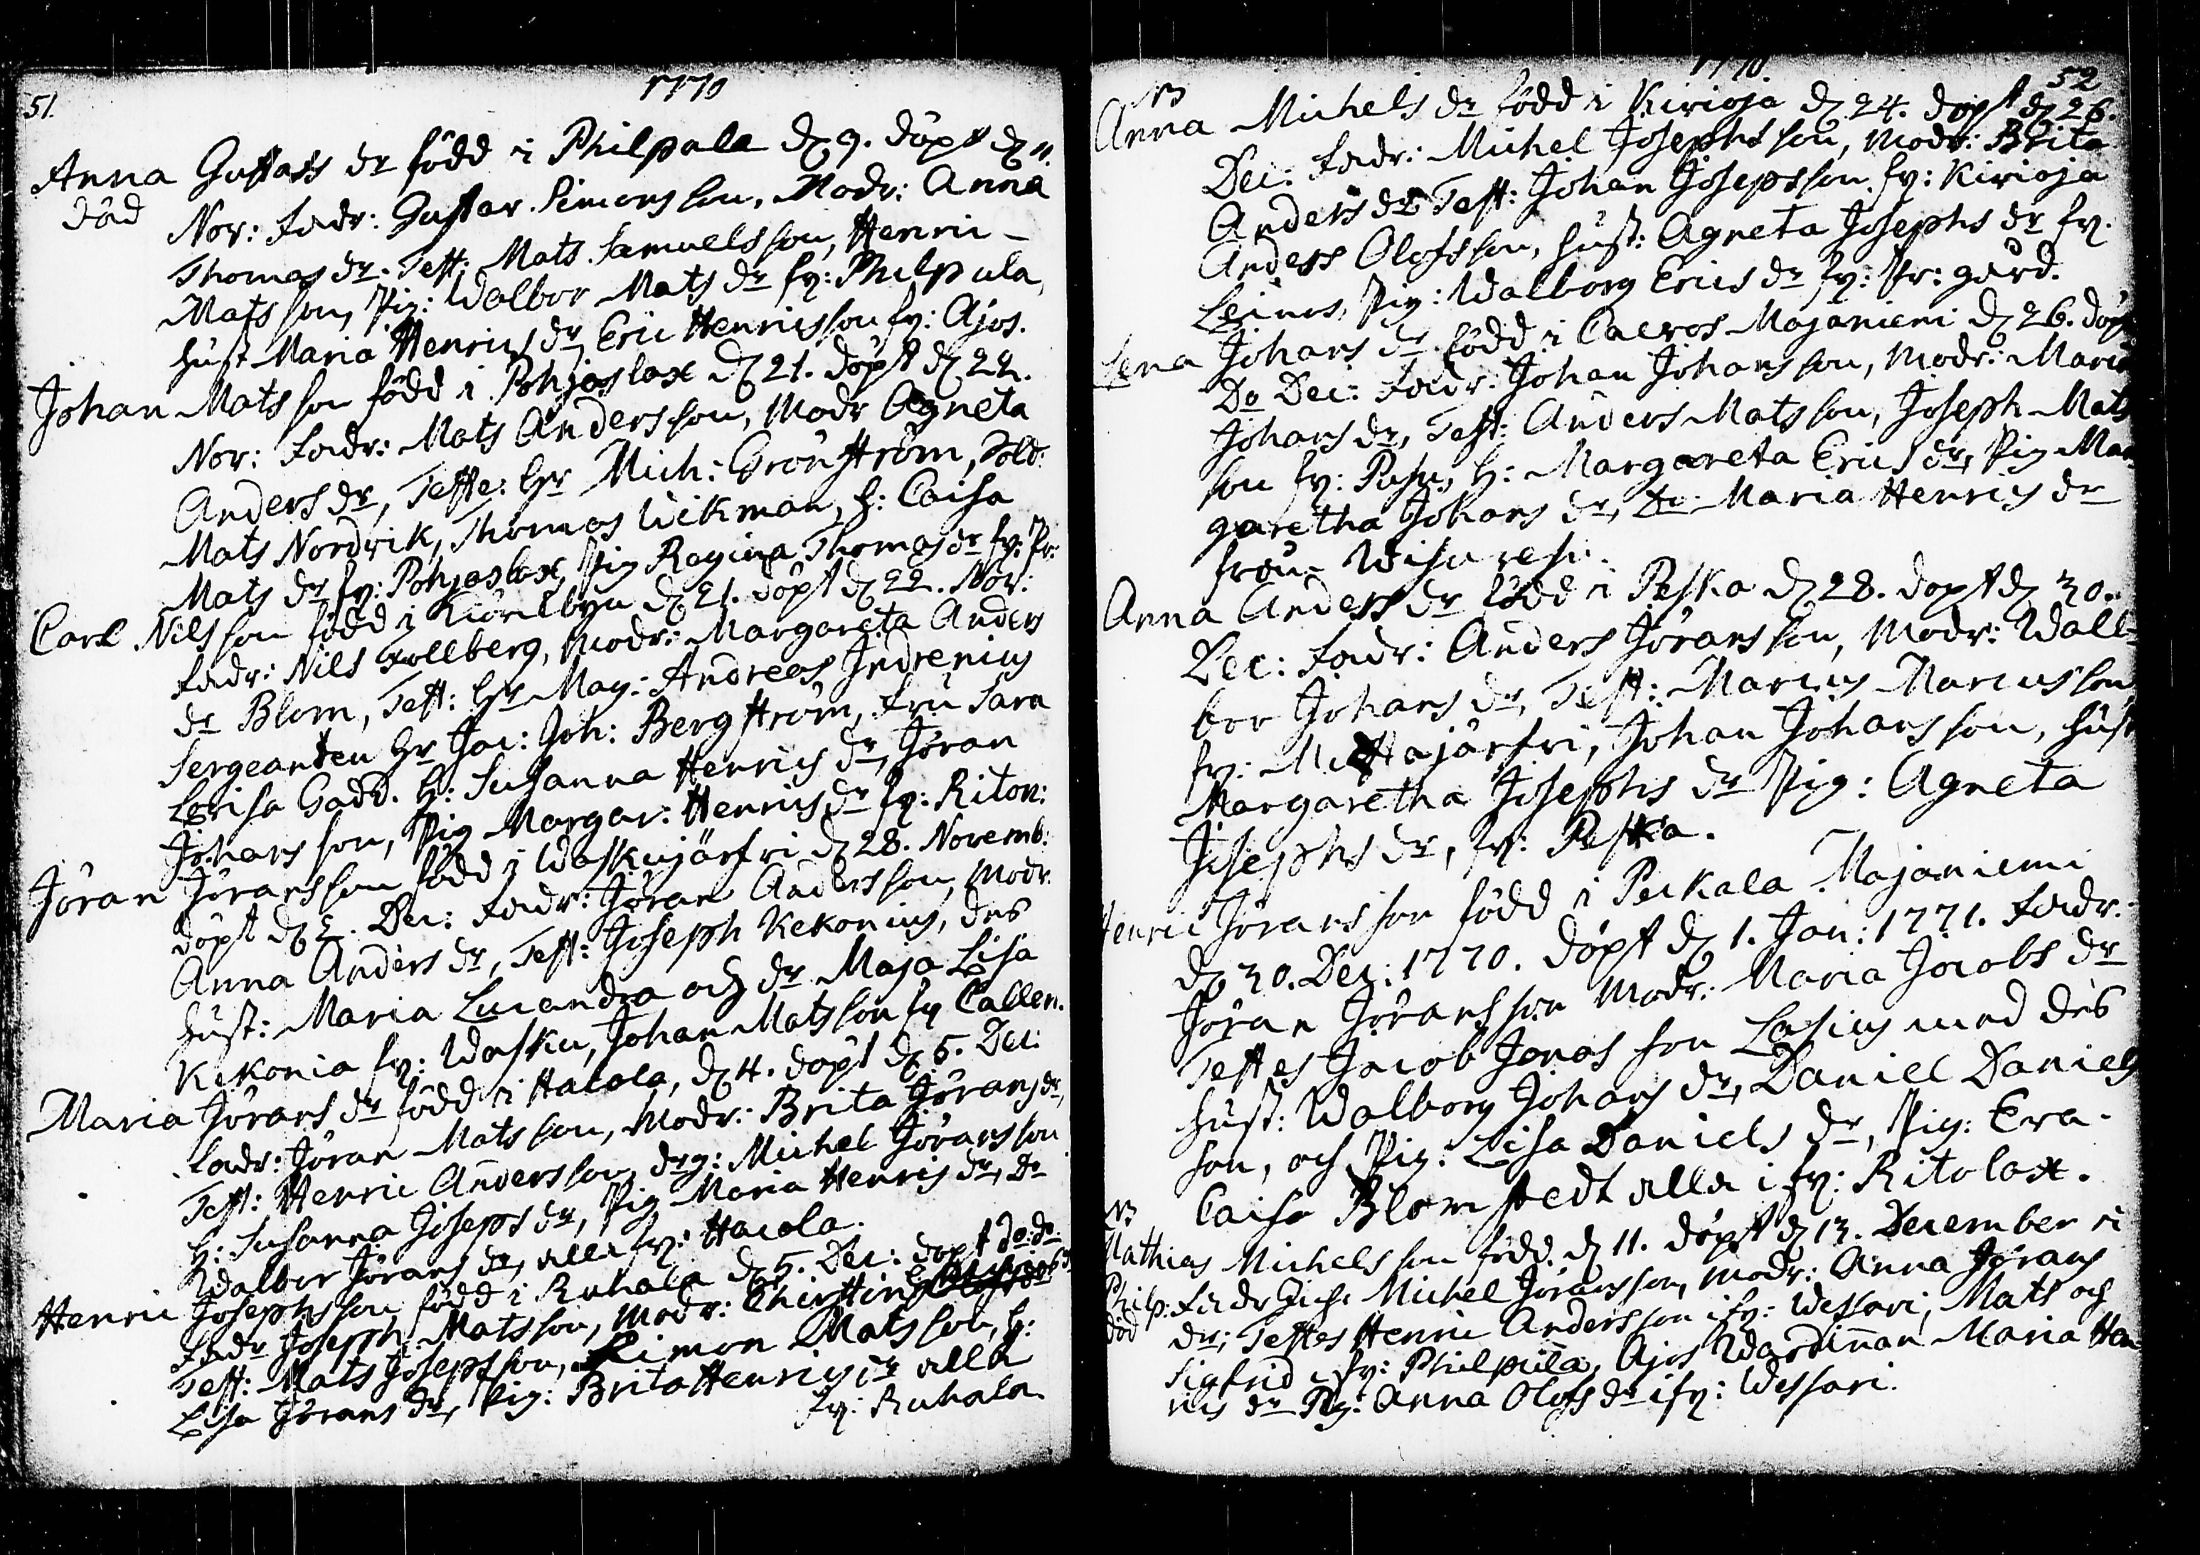 51.
1770
Anna Gustafs dr född i Philpula d 9. döpt d 11.
död Nov: Fadr: Gustav Simonsson, Modr: Anna
Thomas dr. Test: Mats Samuelsson, Henric
Matsson, Pig: Walbor Mats dr fr: Philpula,
Hust Maria Henrics dr Eric Henricsson fr: Ajos.
Johan Matsson född i Pohjoslax d 21. döpt d 22.
Nov: Fadr: Mats Andersson, Modr Agneta
Anders dr, Teste: Hr Mich: Grönström, Sold:
Mats Nordvik, Thomas Wikman, h: Caisa
Mats dr fr: Pohjoslax, Pig Regina Thomas dr fr: Pr:
Carl Nilsson född i d 21. döpt d 22. Nov:
Fadr: Nils Follberg, Modr: Margareta Anders
dr Blom, Test: Hr Mag: Andreas Indrenius
Sergeanten Hr Jac: Joh: Bergström, Fru Sara
Lovisa Gadd. h: Susanna Henrics dr, Jöran
Johansson, Pig Margar: Henrics dr fr: Riton:
Jöran Jöransson född i Waskujärfvi d 28. Novemb:
döpt d 2. Dec: Fadr: Jöran Andersson, Modr:
Anna Anders dr, Test: Joseph Kekonius, des
hust: Maria Lucendra och dr Maja Lisa
Kekonia fr: Wasku, Johan Matsson fr Callen.
Maria Jörans dr född i Hacola, d 4. döpt d 5. Dec:
Fadr: Jöran Matsson, Modr: Brita Jörans dr,
Test: Henric Andersson, drg: Michel Jöransson
h: Susanna Joseps dr, Pig Maria Henrics dr, Do
Walbor Jörans dr, alla fr: Hacola.
Henric Josephsson född i Ruhala d 5. Dec: döpt do: do
Fadr Joseph Matsson, Modr: Chirstin
Test: Mats Josepsson, Simon Matsson, h:
Lisa Jörans dr, Pig: Brita Henrics dr alla
fr: Ruhala.
1770.
52
NB
Anna Michels dr född i Kirioja d 24. döpt d 26.
Dec: Fadr: Michel Josephsson, Modr: Brita
Anders dr Test: Johan Josepsson fr: Kirioja
Anders Olofsson, hust: Agneta Josephs dr fr.
Leinos, Pig: Walborg Erics dr fr: Pr: gård.
Lena Johans dr född i Calvos Majaniemi d 26. döpt
Do Dec: Fadr: Johan Johansson, Modr: Maria
Johans dr, Test: Anders Matsson, Joseph Mats
son fr: h: Margareta Erics dr, Pig Mar
garetha Johans dr, Do Maria Henrics dr
från
Anna Anders dr född i Peska d 28. döpt d 30.
Dec: Fadr: Anders Jöransson, Modr: Wall
bor Johans dr, Test: Marcus Marcusson
fr: Johan Johansson, hust
Margaretha Josephs dr Pig: Agneta
Josephs dr, fr: Peska.
Henric Jöransson född i Peckala Majaniemi
d 30. Dec: 1770. döpt d 1. Jan: 1771. Fadr:
Jöran Jöransson Modr: Maria Jacobs dr
Testes Jacob Jonas son Lasius med des
hust: Walborg Johans dr, Daniel Daniels
son, och Pig: Lisa Daniels dr, Pig: Eva
Caisa Blomstedt alla i fr: Ritolax.
NB
Mathias Michelsson född d 11. döpt d 13. December i
Philp: Fadr Michel Jöransson, Modr: Anna Jörans
död dr; Testes Henric Andersson i fr: Wessari, Mats och
Sigfrid i fr: Philpula, Ajos Wardinnan Maria Hen
rics dr Pig: Anna Olofs dr i fr: Wessari.